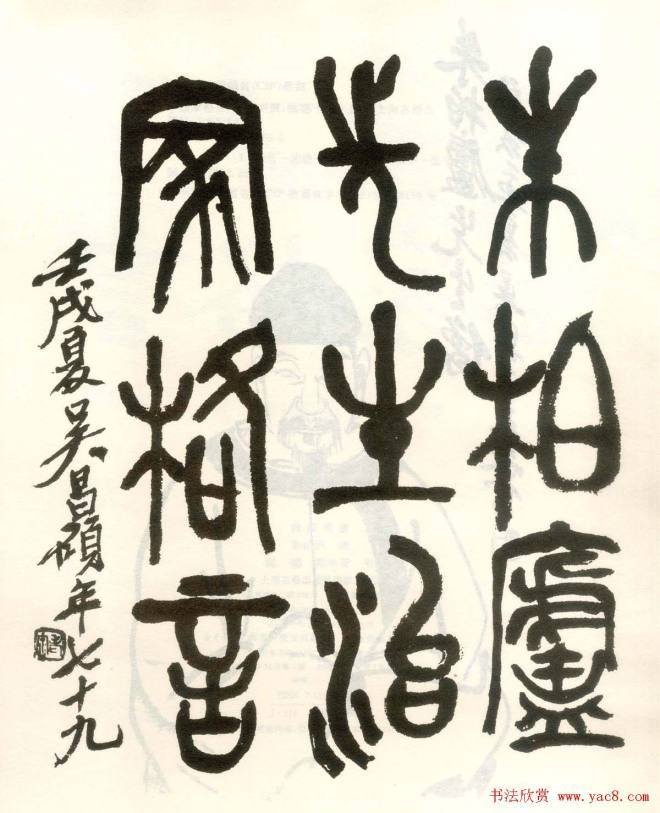 朱柏廬
先生治
家格言
壬戌夏吳昌碩年七十九
书法欣赏 www.yac8.com